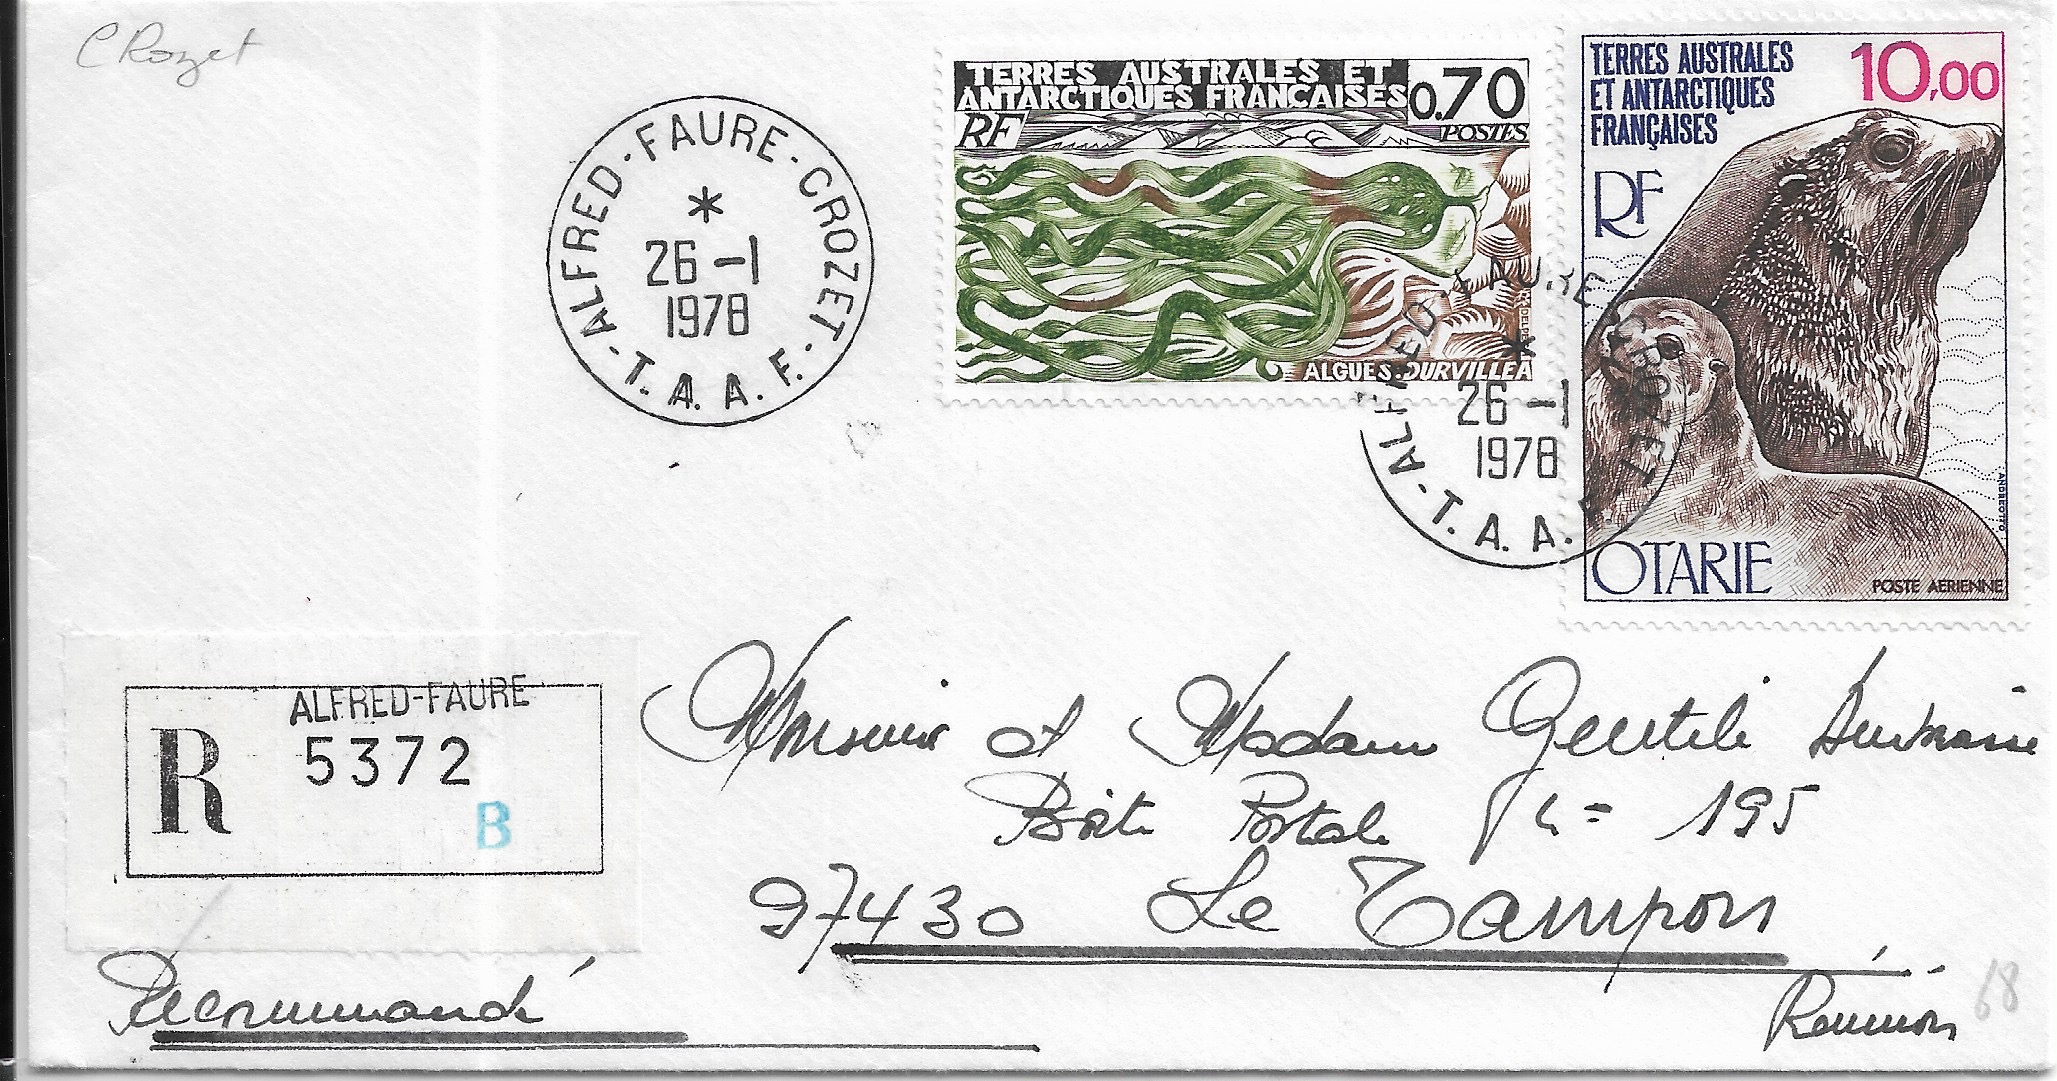 CRozet
ALFRED-FAURE-CROZET-
T.A.A.F.
*
26-1
1978
TERRES AUSTRALES ET
ANTARCTIQUES FRANÇAISES
0.70
RF
POSTES
ALGUES.DURVILLEA
TERRES AUSTRALES
ET ANTARCTIQUES
FRANÇAISES
10,00
RF
ANDREOTTO
OTARIE
POSTE AERIENNE
ALFRED-FAURE-CROZET-
T.A.A.F.
*
26-1
1978
ALFRED-FAURE
R 5372
B
Monsieur et Madame Gentile
Boîte Postale 195
97430 Le Tampon
Réunion
68
Recommandé